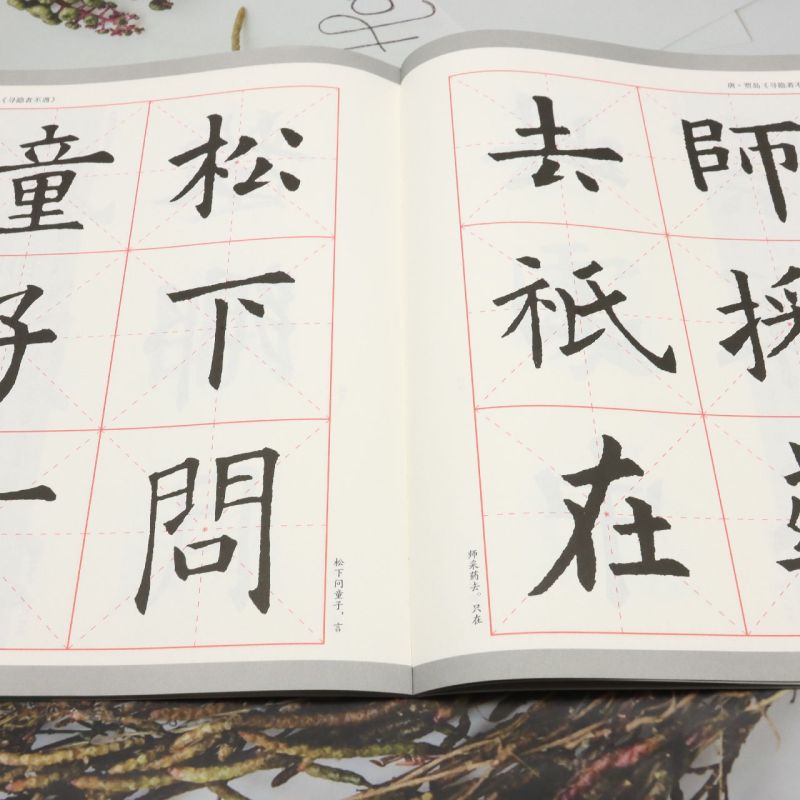 《寻隐者不遇》
松下問
童子
松下问童子，言
唐·贾岛《寻隐者不
師採
去祇在
师采药去。只在